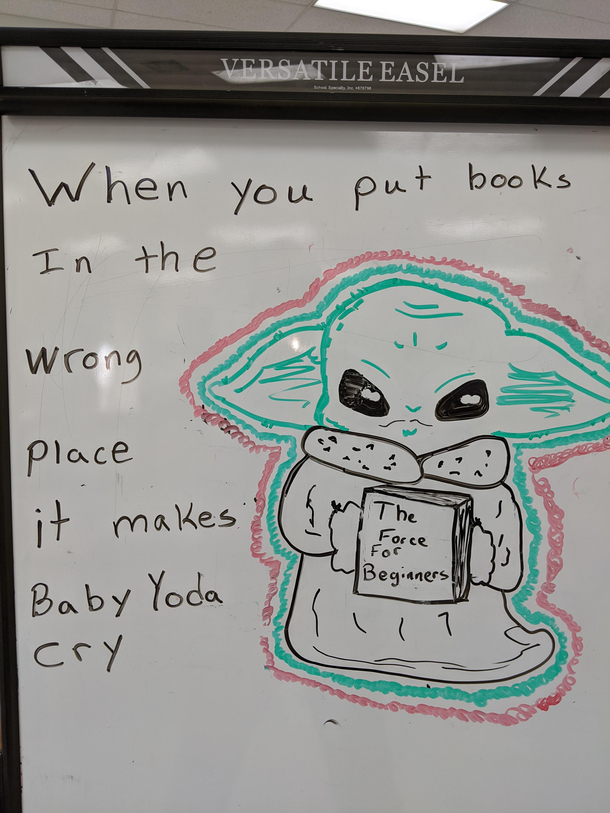 VERSATILE EASEL
School Specialty, Inc. #678796
When you put books
In the
wrong
place
it makes
Baby Yoda
cry
The
Force
For
Beginners